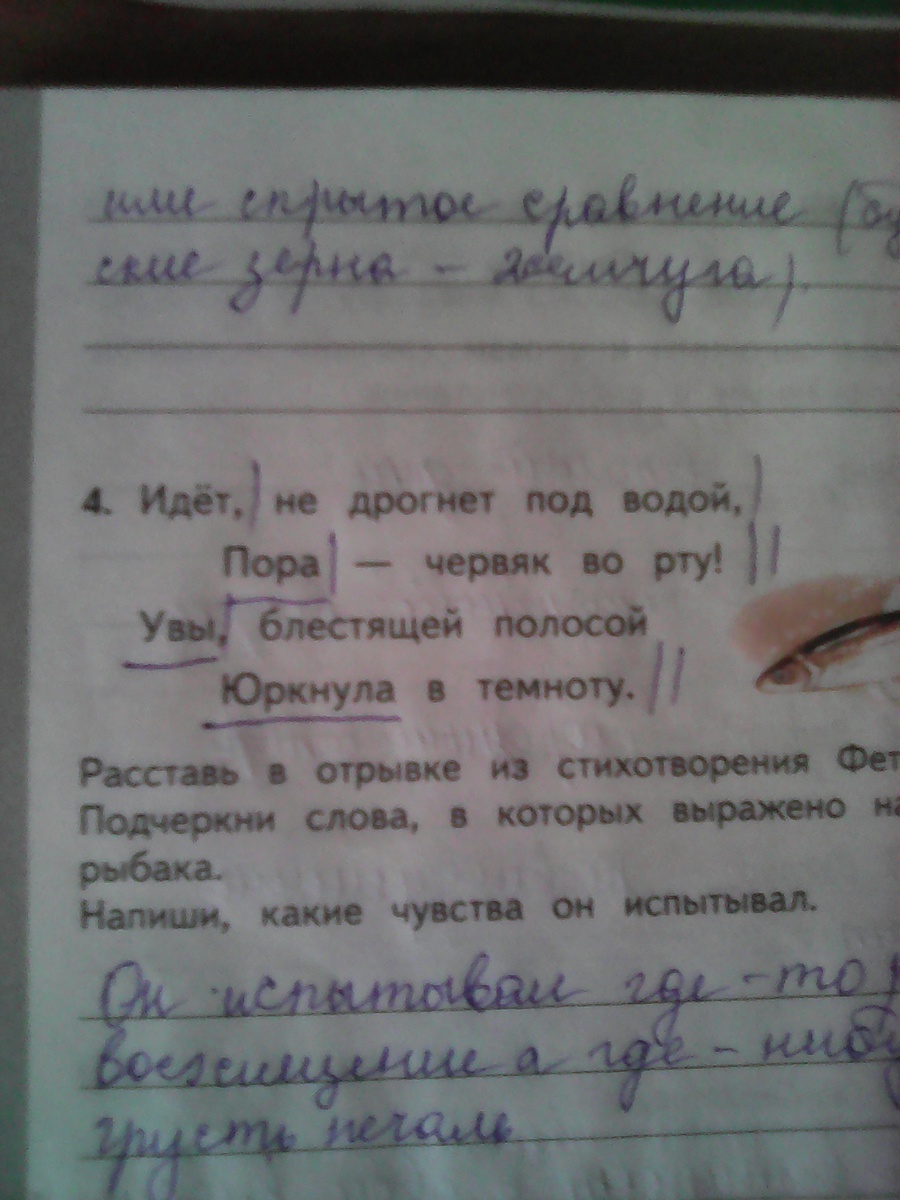 или спрытое сравнение
ские зерна - жемчуга).
4. Идёт, не дрогнет под водой,
Пора — червяк во рту!
Увы, блестящей полосой
Юркнула в темноту.
Расставь в отрывке из стихотворения Фет
Подчеркни слова, в которых выражено на
рыбака.
Напиши, какие чувства он испытывал.
Он испытывал где-то
восхищение а где-нибу
грусть печаль